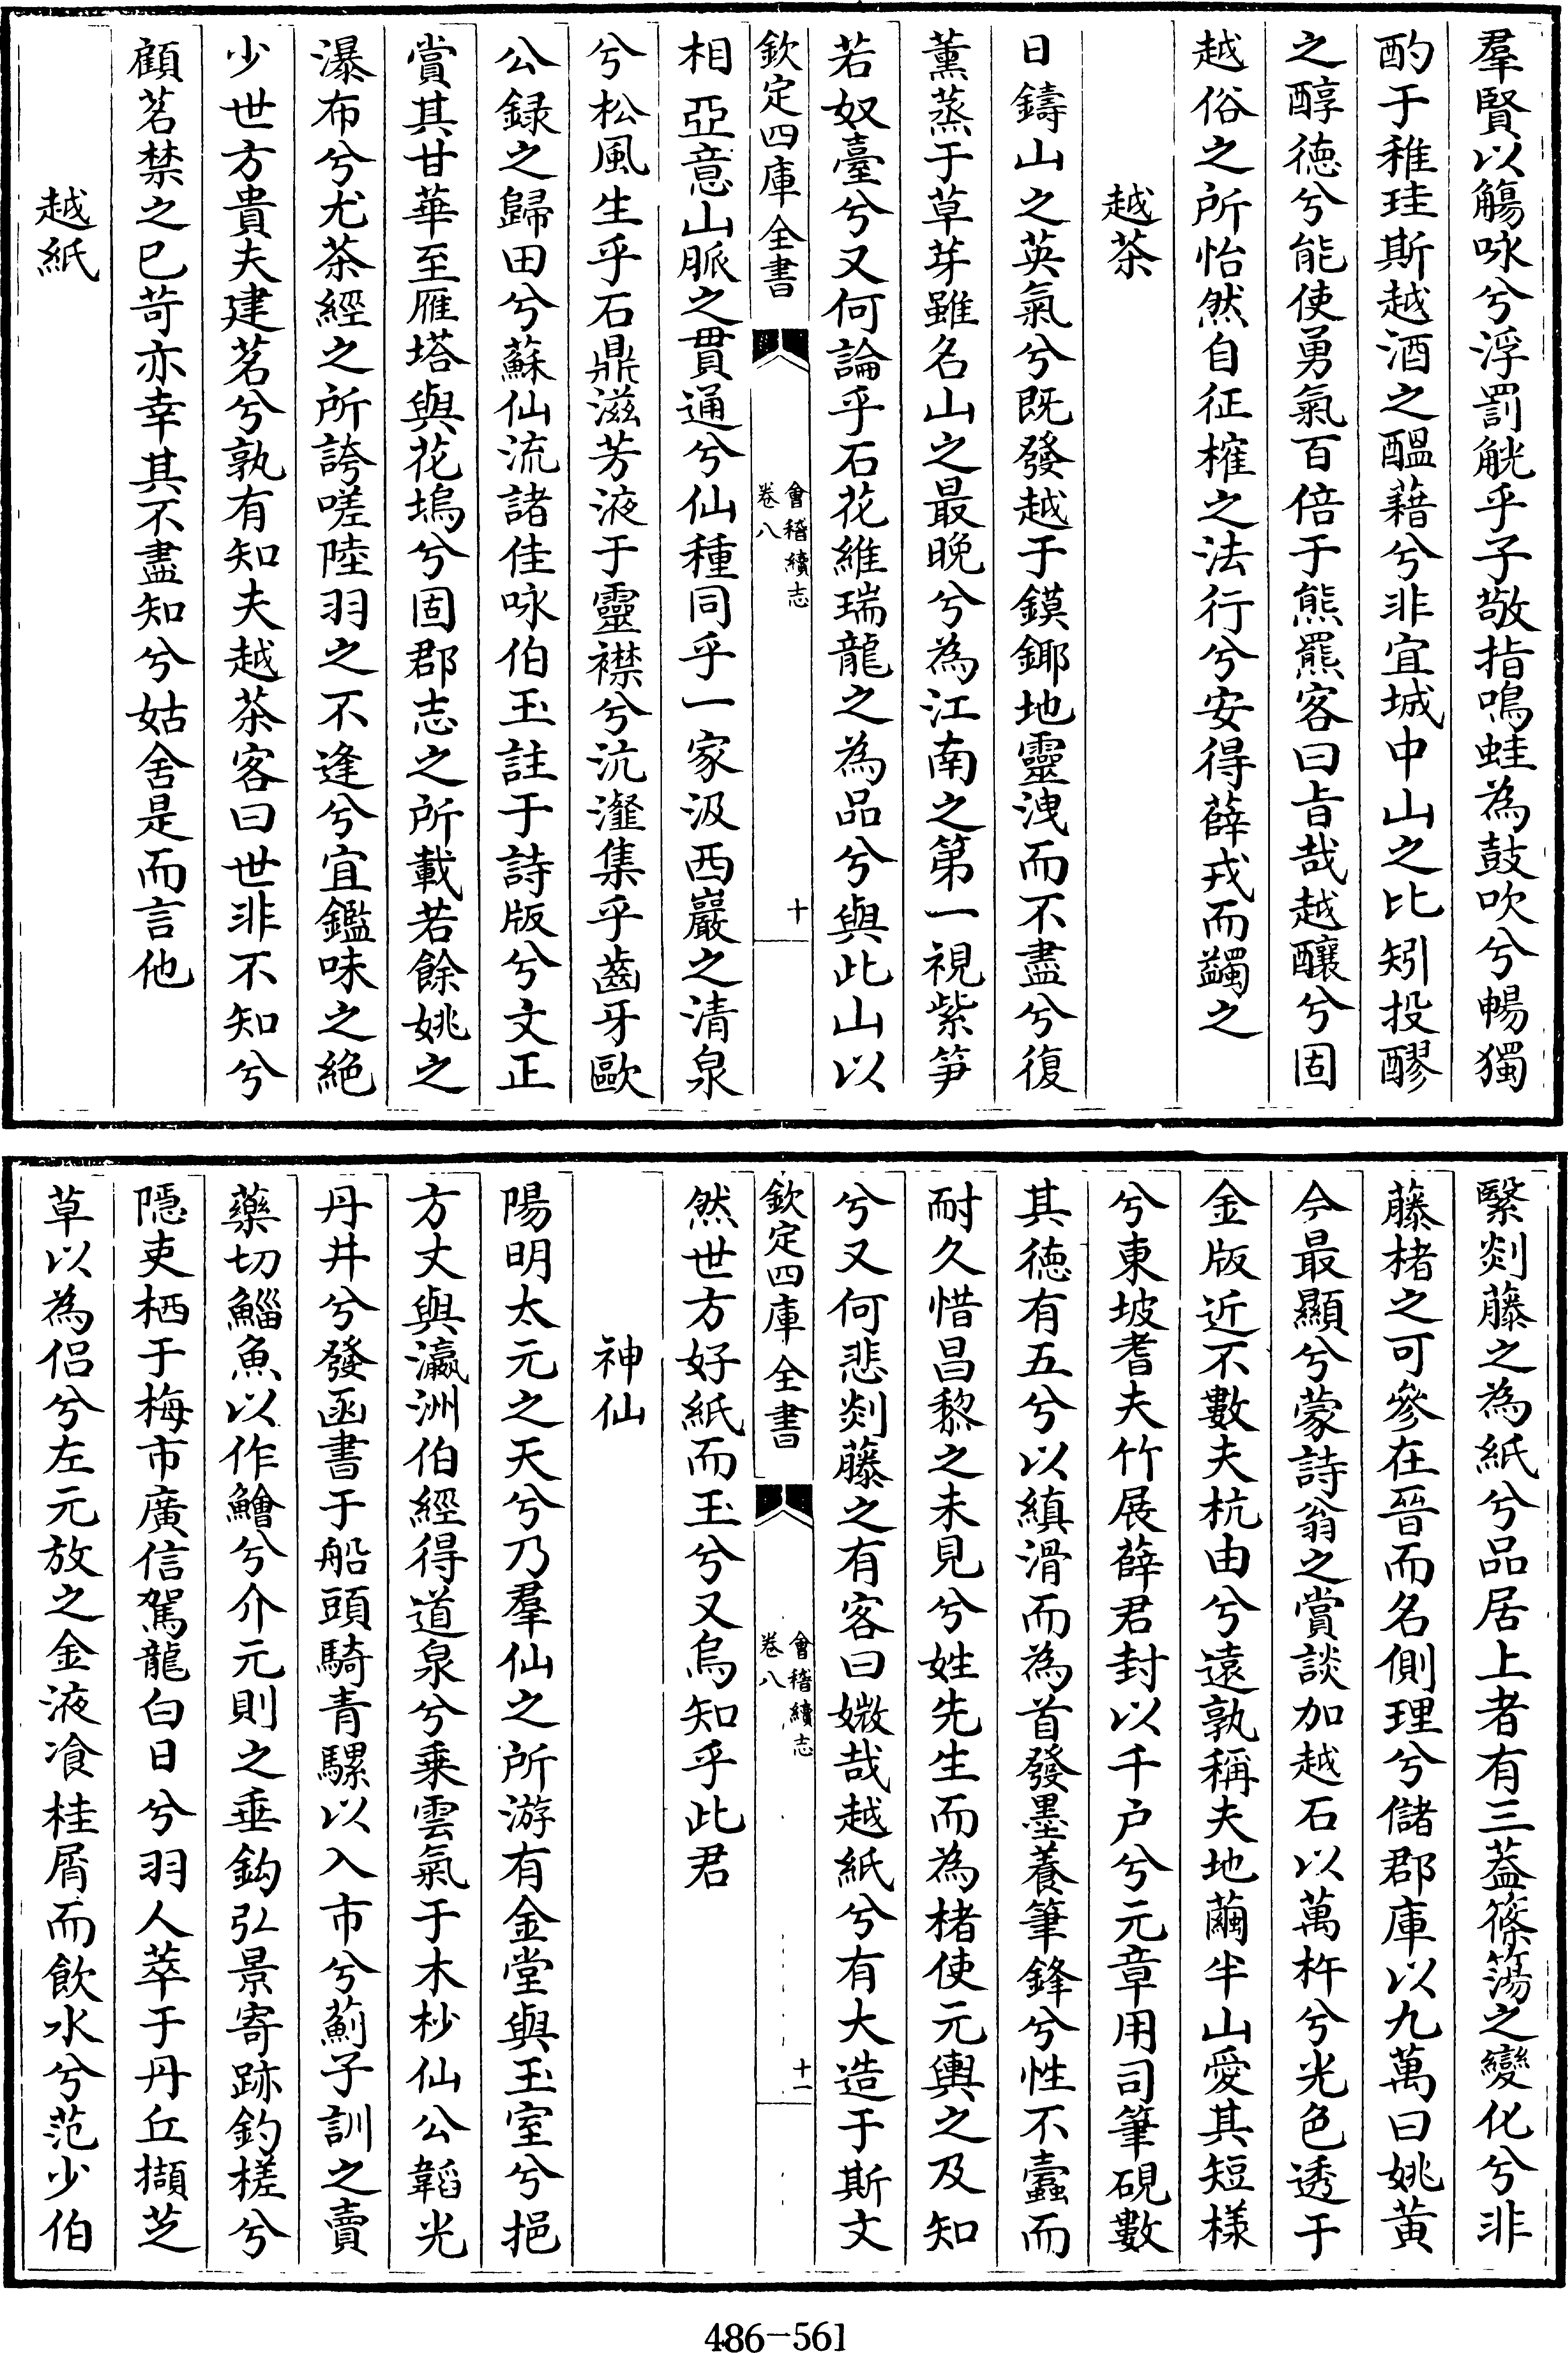 羣賢以觴咏兮浮罰觥乎子敬指鳴蛙為鼓吹兮暢獨
酌于稚珪斯越酒之醖藉兮非宜城中山之比矧投醪
之醇德兮能使勇氣百倍于熊羆客曰旨哉越釀兮固
越俗之所怡然自征榷之法行兮安得薛戎而蠲之
越茶
日鑄山之英氣兮既發越于鏌鋣地靈洩而不盡兮復
薰蒸于草芽雖名山之最晚兮為江南之第一視紫笋
若奴臺兮又何論乎石花維瑞龍之為品兮與此山以
欽定四庫全書
會稽續志
卷八
十
相亞意山脈之貫通兮仙種同乎一家汲西巖之清泉
兮松風生乎石鼎滋芳液于靈襟兮沆瀣集乎齒牙歐
公録之歸田兮蘇仙流諸佳咏伯玉註于詩版兮文正
賞其甘華至雁塔與花塢兮固郡志之所載若餘姚之
瀑布兮尤茶經之所誇嗟陸羽之不逢兮宜鑑味之絶
少世方貴夫建茗兮孰有知夫越茶客曰世非不知兮
顧茗禁之已苛亦幸其不盡知兮姑舍是而言他
越紙
緊剡藤之為紙兮品居上者有三蓋篠簜之變化兮非
藤楮之可參在晉而名側理兮儲郡庫以九萬曰姚黄
今最顯兮蒙詩翁之賞談加越石以萬杵兮光色透于
金版近不數夫杭由兮遠孰稱夫地繭半山愛其短樣
兮東坡耆夫竹展薛君封以千户兮元章用司筆硯數
其徳有五兮以縝滑而為首發墨養筆鋒兮性不蠧而
耐久惜昌黎之未見兮姓先生而為楮使元輿之及知
兮又何悲剡藤之有客曰媺哉越紙兮有大造于斯文
欽定四庫全書
會稽續志
卷八
十一
然世方好紙而玉兮又烏知乎此君
神仙
陽明太元之天兮乃羣仙之所游有金堂與玉室兮挹
方丈與瀛洲伯經得道泉兮乘雲氣于木杪仙公韜光
丹井兮發函書于船頭騎青騾以入市兮薊子訓之賣
藥切鯔魚以作鱠兮介元則之垂鈎弘景寄跡釣槎兮
隱吏栖于梅市廣信駕龍白日兮羽人萃于丹丘擷芝
草以為侣兮左元放之金液飡桂屑而飲水兮范少伯
486-561